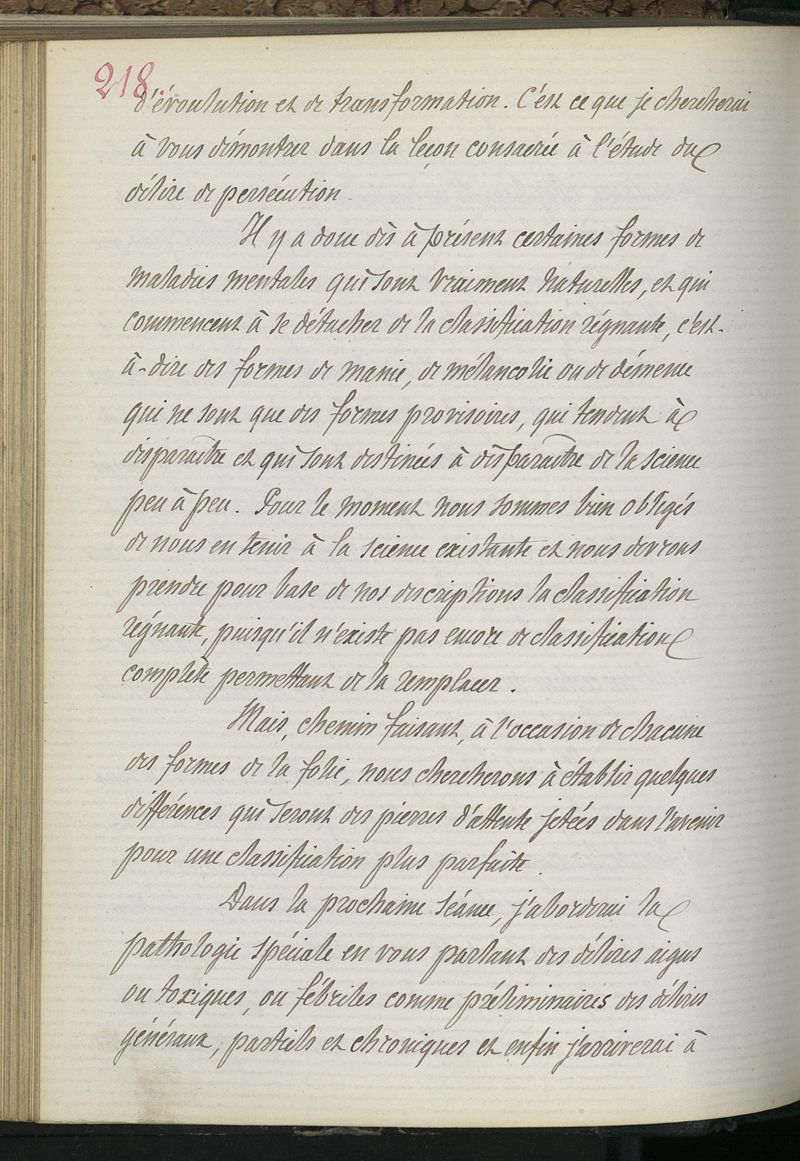 218
d'évolution et de transformation. C'est ce que je chercherai
à vous démontrer dans la leçon consacrée à l'étude du
délire de persécution.
Il y a donc dès à présent certaines formes de
maladies mentales qui sont vraiment naturelles, et qui
commencent à se détacher de la classification régnante, c'est-
à-dire des formes de manie, de mélancolie ou de démence
qui ne sont que des formes provisoires, qui tendent à
disparaître et qui sont destinées à disparaître de la science
peu à peu. Pour le moment nous sommes bien obligés
de nous en tenir à la science existante et nous devrons
prendre pour base de nos descriptions la classification
régnante, puisqu'il n'existe pas encore de classification
complète permettant de la remplacer.
Mais, chemin faisant, à l'occasion de chacune
des formes de la folie, nous chercherons à établir quelques
différences qui seront des pierres d'attente jetées dans l'avenir
pour une classification plus parfaite.
Dans la prochaine séance, j'aborderai la
pathologie spéciale en vous parlant des délires aigus
ou toxiques, ou fébriles comme préliminaires des délires
généraux, partiels et chroniques et enfin j'arriverai à